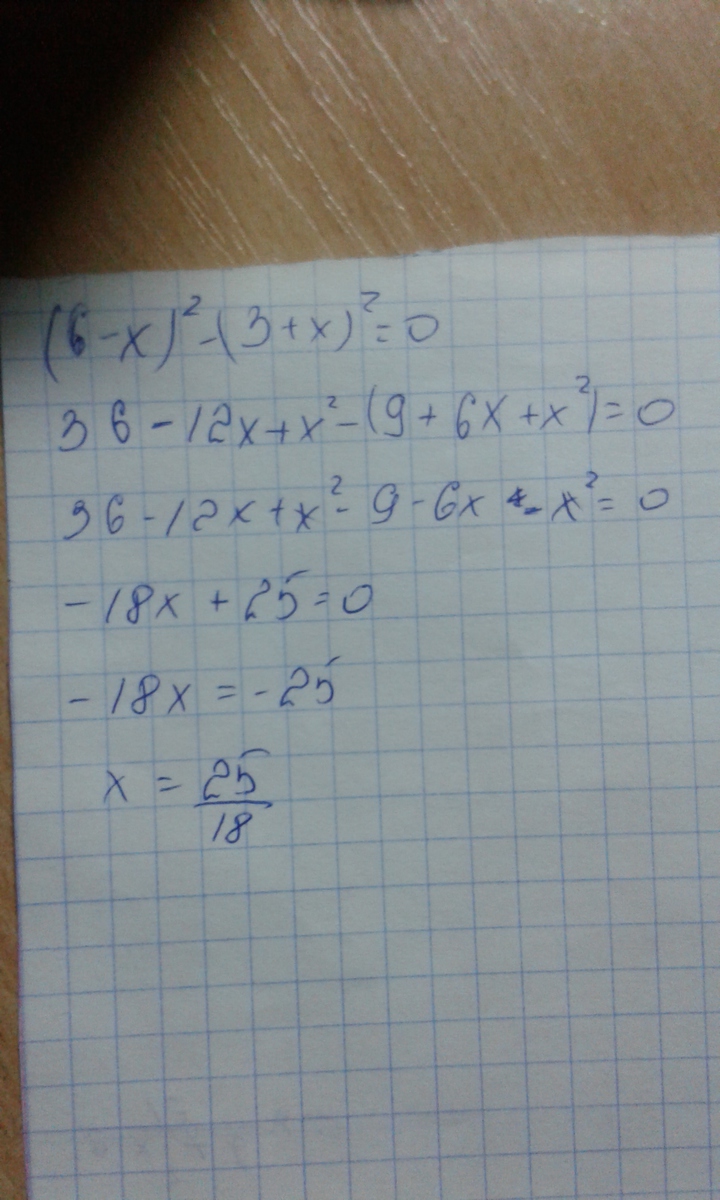 (6-x)²-(3+x)²=0
36-12x+x²-(9+6x+x²)=0
36-12x+x²-9-6x-x²=0
-18x+25=0
-18x=-25
x=25/18